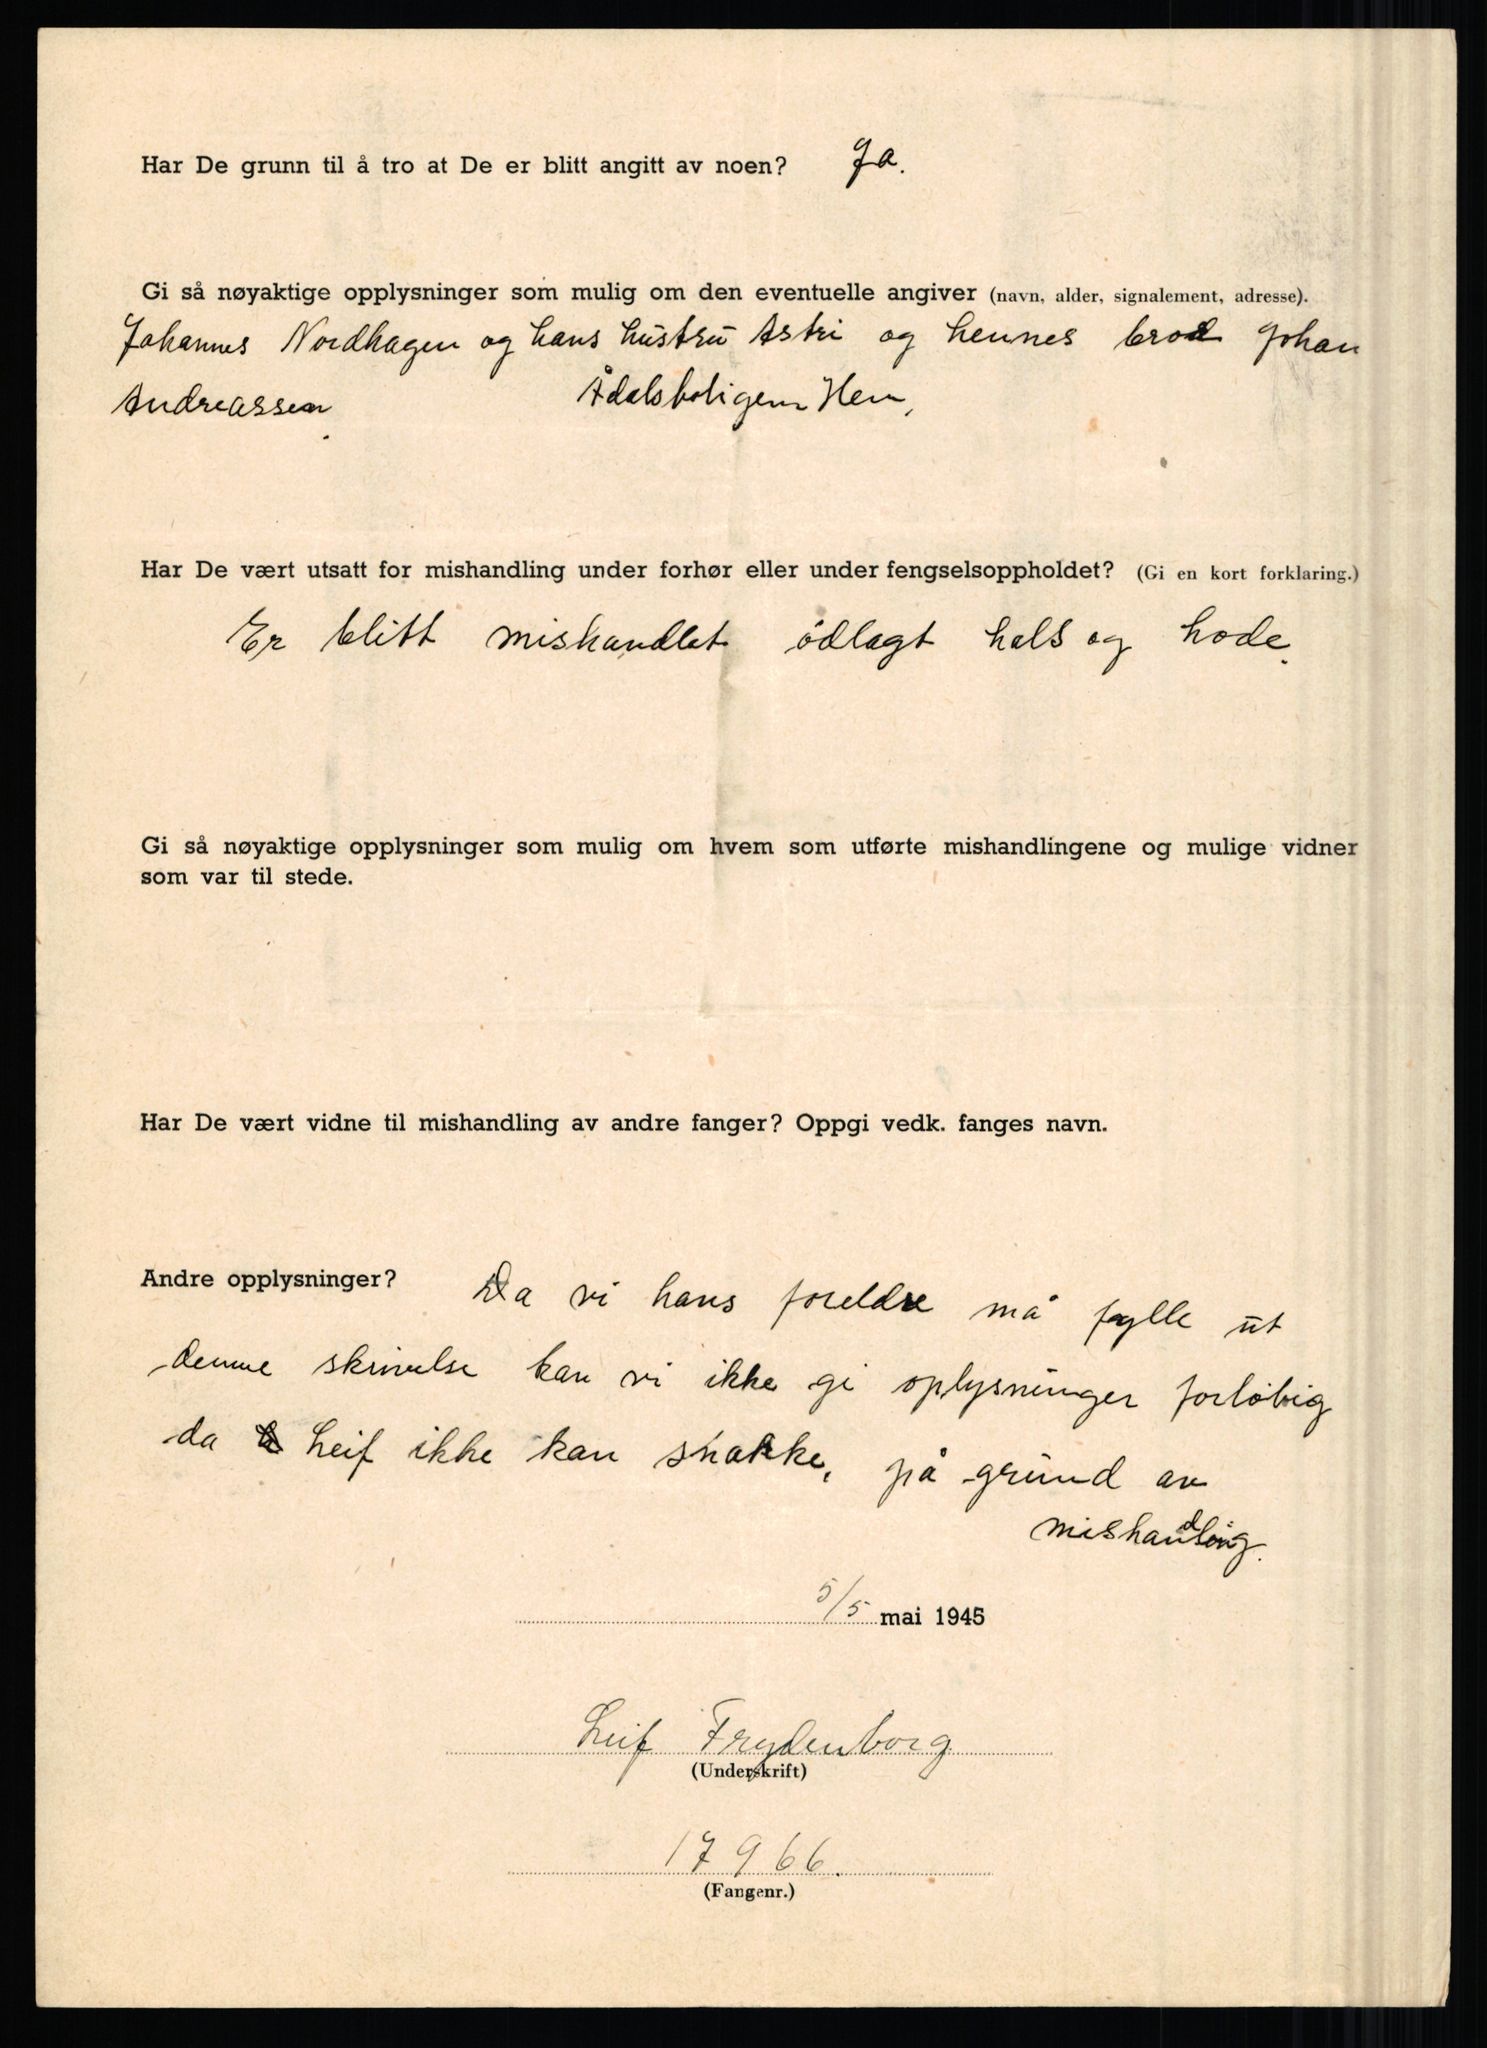 Har De grunn til å tro at De er blitt angitt av noen? Ja.
Gi så nøyaktige opplysninger som mulig om den eventuelle angiver (navn, alder, signalement, adresse).
Johannes Nordhagen og hans hustru Astri og hennes brod Johan
Andreassen. Ådalsboligen Hen,
Har De vært utsatt for mishandling under forhør eller under fengselsoppholdet? (Gi en kort forklaring.)
Er blitt mishandlet ödlagt hals og hode.
Gi så nøyaktige opplysninger som mulig om hvem som utførte mishandlingene og mulige vidner
som var til stede.
Har De vært vidne til mishandling av andre fanger? Oppgi vedk. fanges navn.
Andre opplysninger? Da vi hans foreldre må fylle ut
denne skrivelse kan vi ikke gi oplysninger forlöbig
da Leif ikke kan snakke, på grund av
mishandling.
5/5 mai 1945
Leif Frydenborg
(Underskrift)
17966.
(Fangenr.)